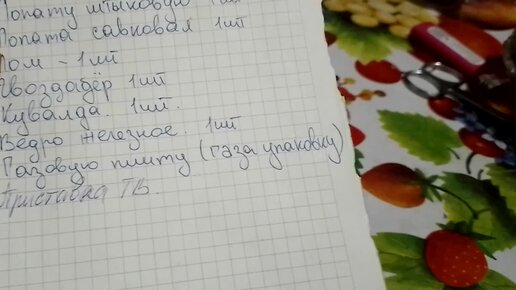 Лопату штыковую 1шт
Лопата савковая 1шт
Лом - 1шт
Гвоздадёр 1шт
Кувалда. 1шт.
Ведро железное. 1шт
Газовую плиту (газа упаковку)
Приставка ТВ.